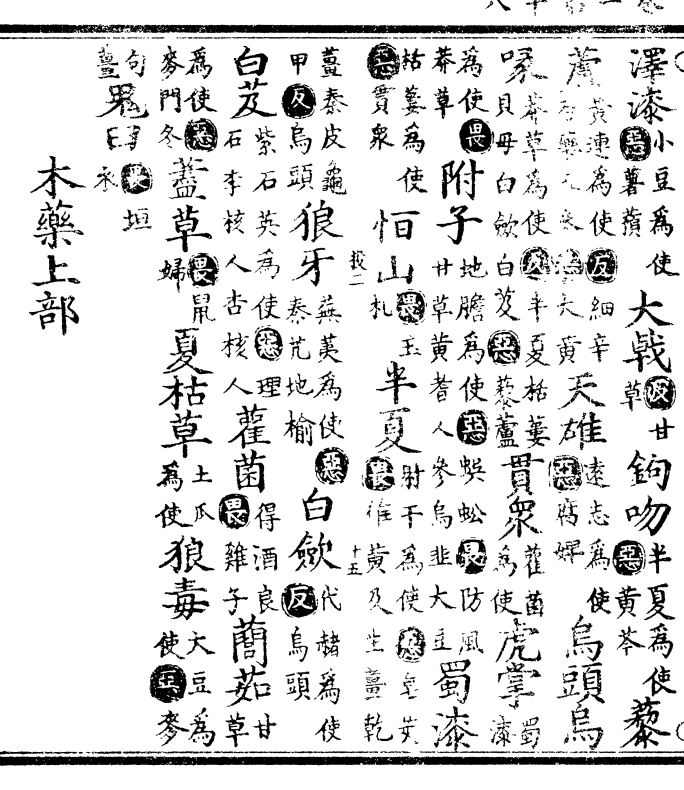 澤漆小豆為使惡薯蕷大戟反甘草鉤吻半夏為使惡黃芩藜
蘆黃連為使反細辛芍藥五參惡大黃天雄遠志為使惡腐婢烏頭烏
喙莽草為使反半夏栝蔞貝母白斂白芨惡藜蘆貫衆雚菌為使虎掌蜀漆
為使畏莽草附子地膽為使惡蜈蚣畏防風甘草黃耆人參烏韭大豆蜀漆
枯蔞為使惡貫衆恒山畏玉札半夏射干為使惡皂莢畏雄黃及生薑乾
薑秦皮龜甲反烏頭狼牙蕪荑為使惡秦艽地榆白斂代赭為使反烏頭
白芨紫石英為使惡理石李核人杏核人雚菌得酒良畏雞子藺茹甘草
為使惡麥門冬藎草畏鼠婦夏枯草土瓜為使狼毒大豆為使惡麥
句薑鬼臼畏垣衣
木藥上部